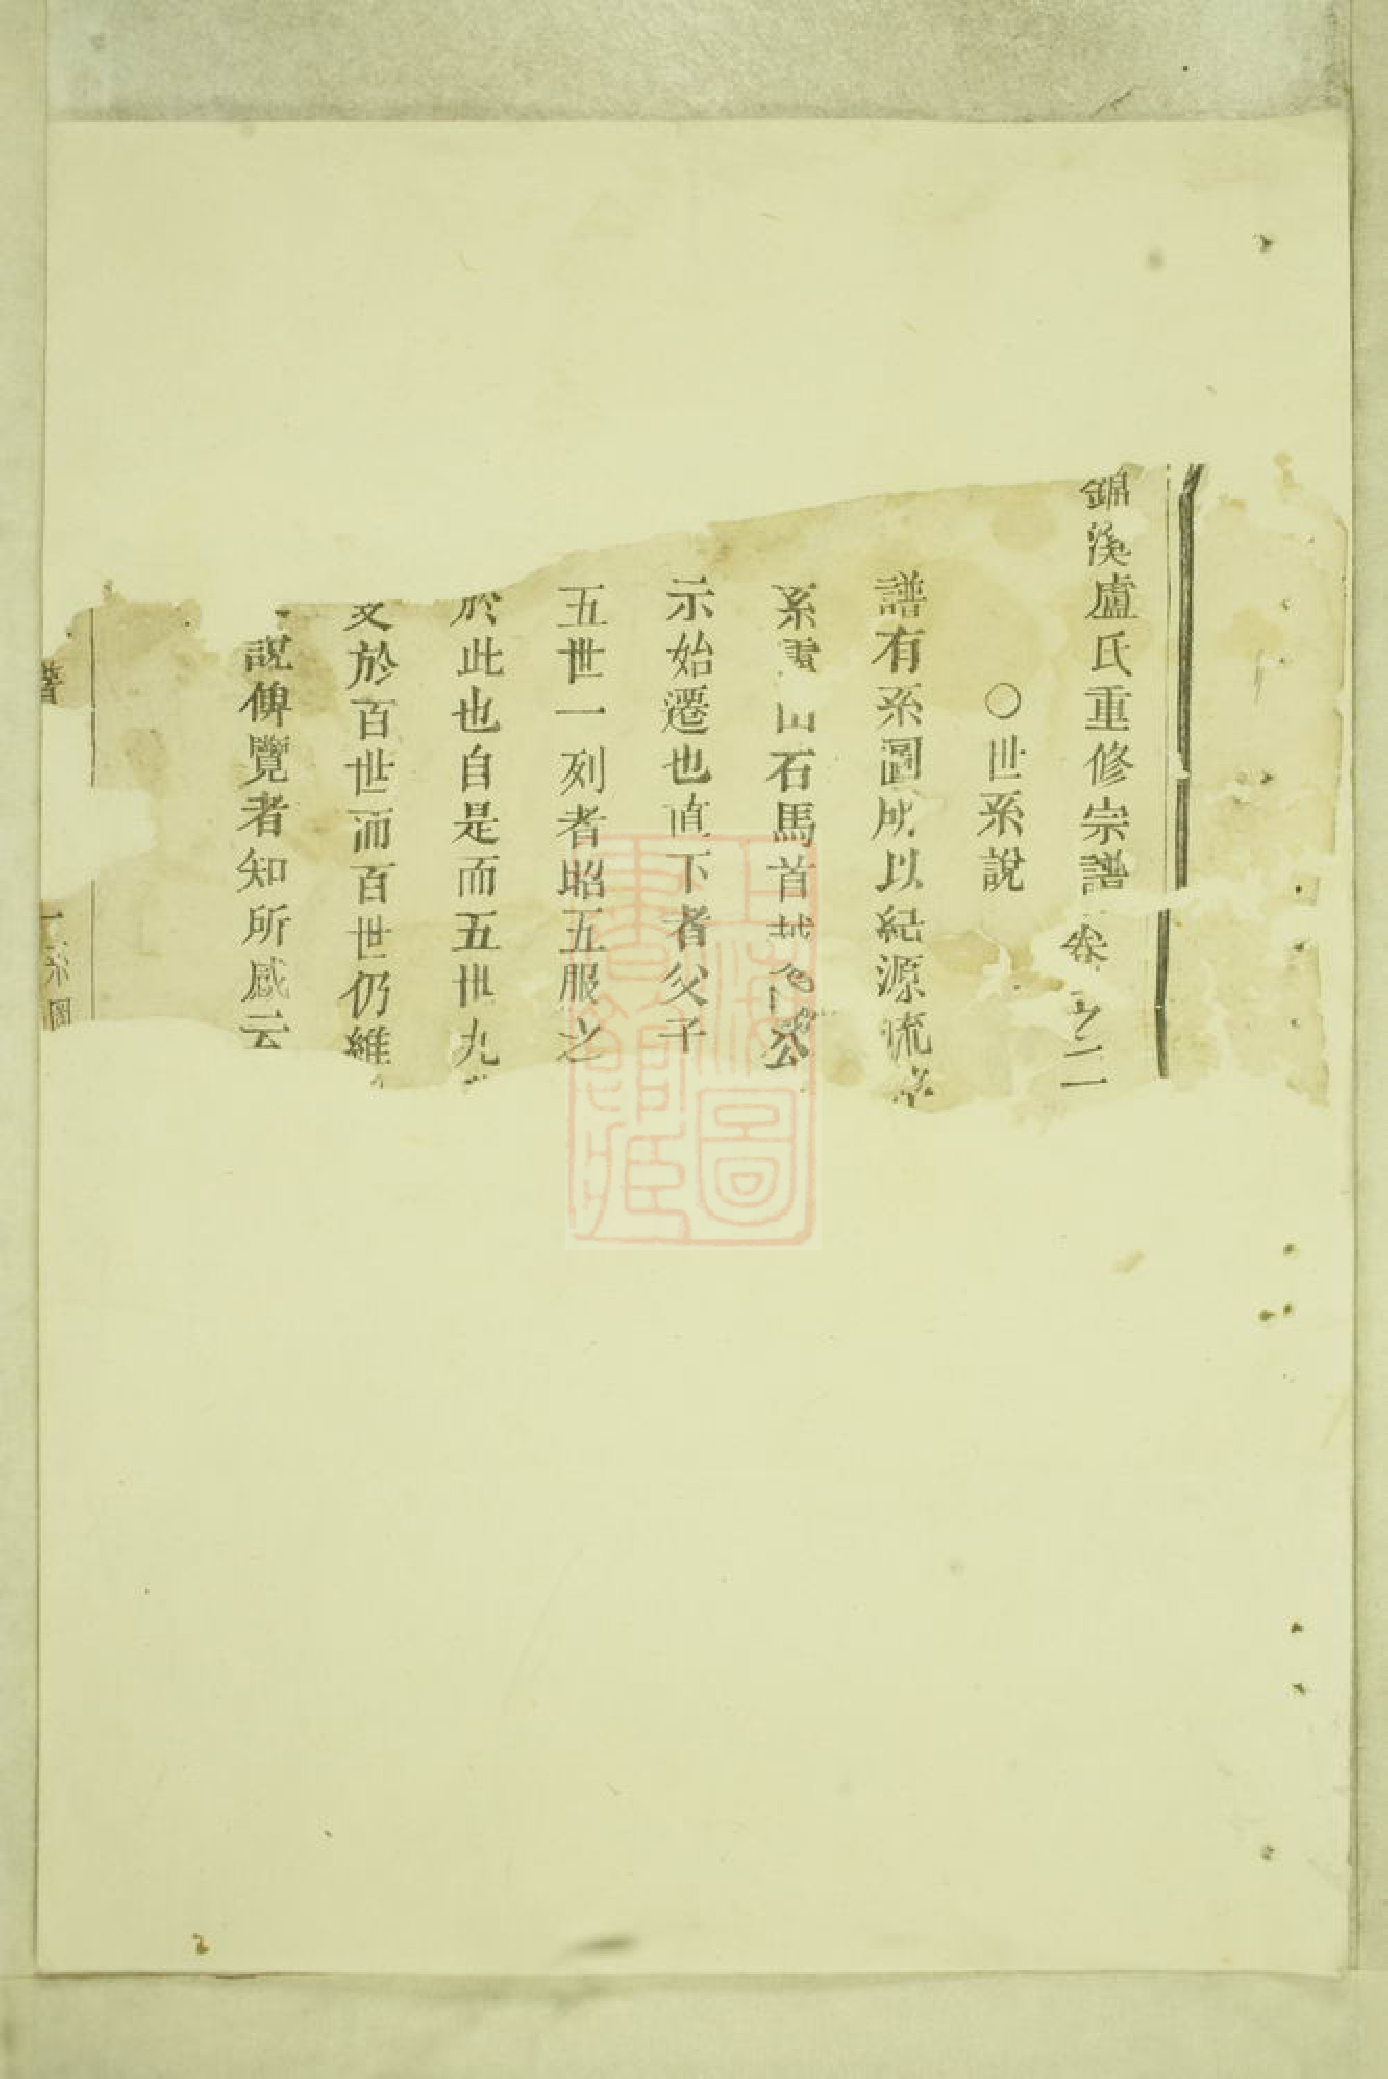 錦溪盧氏重修宗譜卷之二
○世系說
譜有系圖所以紀源流
系 石馬首 公
示始遷也直下者父子
五世一列者昭五服之
於此也自是而五世九
於百世而百世仍維
說俾覽者知所感云
系圖
上海圖書館藏